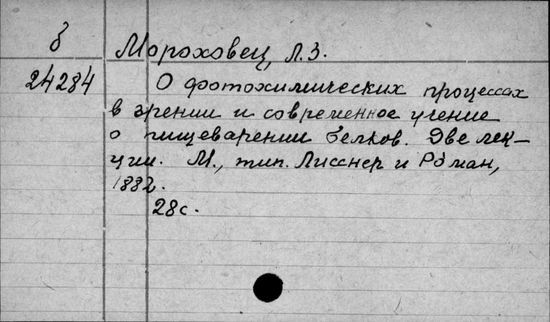 б
Мороховец, Л.З.
24284
О фотохимических процессах
в зрении и современное учение
о пищеварении белков. Две лек-
ции. М., тип. Лисснер и Роман,
1882.
28с.